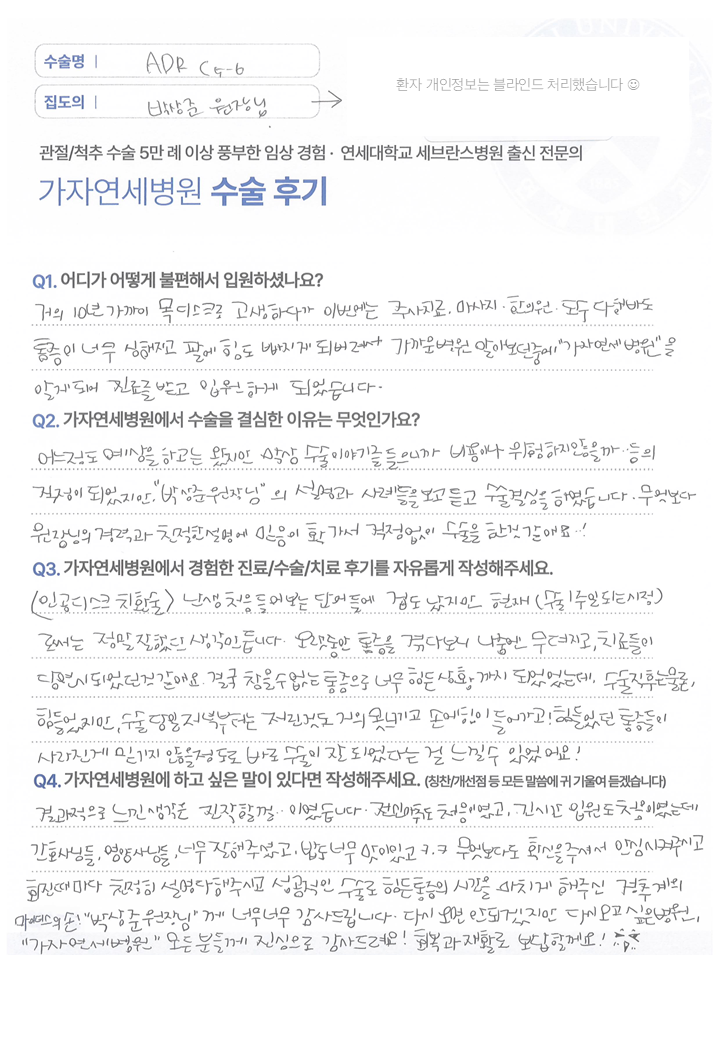 수술명 | ADR C5-6
집도의 | 박상준 원장님 →
환자 개인정보는 블라인드 처리했습니다 ☺
관절/척추 수술 5만 례 이상 풍부한 임상 경험 · 연세대학교 세브란스병원 출신 전문의
가자연세병원 수술 후기
Q1. 어디가 어떻게 불편해서 입원하셨나요?
거의 10년 가까이 목디스크로 고생하다가 이번에는 주사치료, 마사지·한의원·모두 다해봐도
통증이 너무 심해지고 팔에 힘도 빠지게 되버려서 가까운병원 알아보던중에, "가자연세병원"을
알게되어 진료를 받고 입원하게 되었습니다.
Q2. 가자연세병원에서 수술을 결심한 이유는 무엇인가요?
어느정도 예상을 하고는 왔지만 막상 수술이야기를 들으니까 비용이나 위험하지않을까.. 등의
걱정이 되었지만, "박상준원장님"의 설명과 사례들을 보고 듣고 수술결심을 하였습니다. 무엇보다
원장님의 경력과 친절한설명에 믿음이 확 가서 걱정없이 수술을 한것 같애요..!
Q3. 가자연세병원에서 경험한 진료/수술/치료 후기를 자유롭게 작성해주세요.
(인공디스크 치환술) 난생 처음들어보는 단어들에 겁도 났지만 현재 (수술 1주일 되는시점)
로써는 정말 잘했단 생각이 듭니다. 오랫동안 통증을 겪다보니 나중엔 무뎌지고, 치료들이
당연시 되었던것 같애요. 결국 참을수없는 통증으로 너무 힘든 상황까지 되었었는데, 수술직후는물론,
힘들었지만, 수술 당일 저녁부터는 저린것도 거의 못느끼고 손에힘이 들어가고! 힘들었던 통증들이
사라진게 믿기지 않을정도로 바로 수술이 잘 되었다는 걸 느낄수 있었어요!
Q4. 가자연세병원에 하고 싶은 말이 있다면 작성해주세요. (칭찬/개선점 등 모든 말씀에 귀 기울여 듣겠습니다)
결과적으로 느낀 생각은 진작할껄.. 이였습니다. 전신마취도 처음이였고, 긴시간 입원도 처음이였는데
간호사님들, 영양사님들, 너무 잘해주셨고, 밥도 너무 맛이있고 ㅋ.ㅋ 무엇보다도 확신을주셔서 안심시켜주시고
회진때마다 친절히 설명다해주시고 성공적인 수술로 힘든통증의 시간을 마치게 해주신 경추계의
마이더스의 손! "박상준 원장님"께 너무너무 감사드립니다. 다시 오면 안되겠지만 다시오고 싶은병원,
"가자연세병원" 모든 분들께 진심으로 감사드려요! 회복과 재활로 보답할께요!